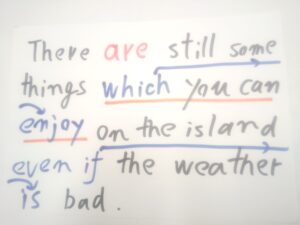 There are still some
things which you can
enjoy on the island
even if the weather
is bad.